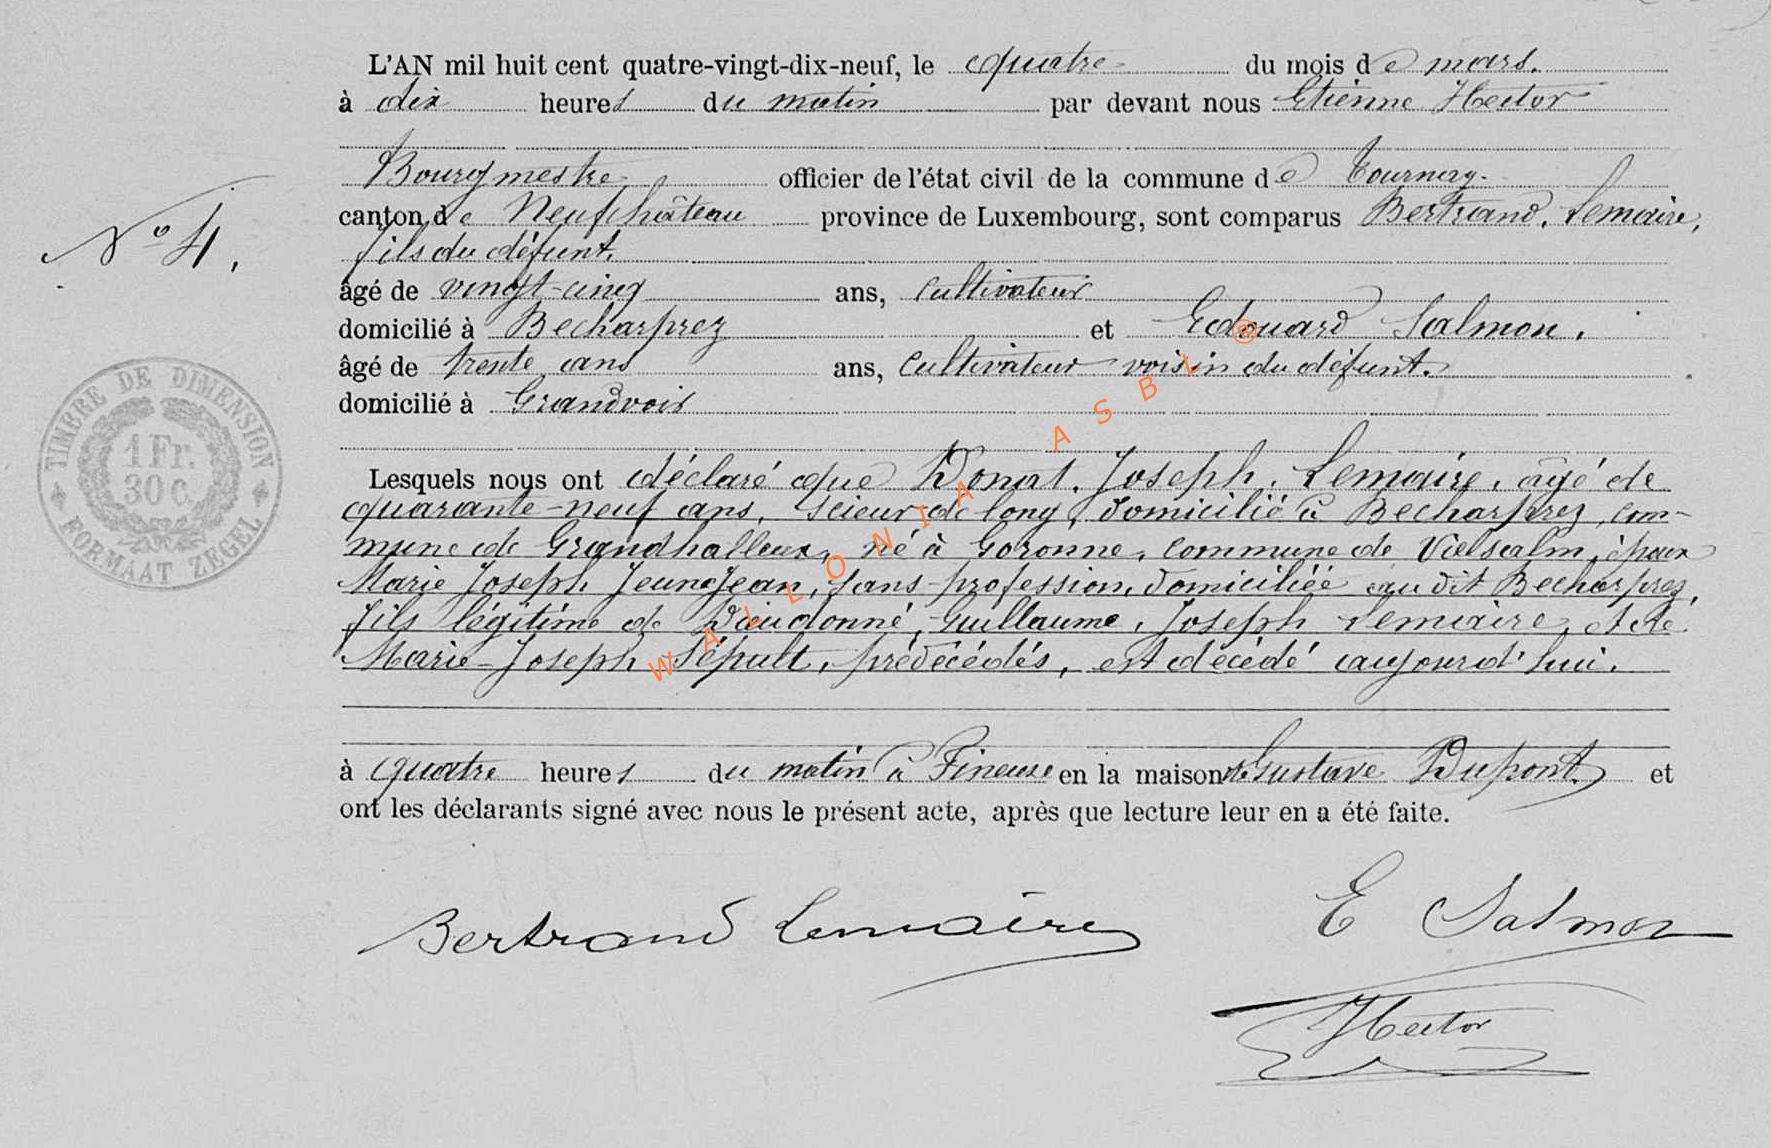 L'AN mil huit cent quatre-vingt-dix-neuf, le quatre du mois de mars.
à dix heures du matin par devant nous Etienne Hector
Bourgmestre officier de l'état civil de la commune de Tournay.
canton de Neufchâteau province de Luxembourg, sont comparus Bertrand, Lemaire,
fils du défunt.
No 4.
âgé de vingt-cinq ans, cultivateur
domicilié à Becharprez et Edouard Salmon.
âgé de trente ans ans, cultivateur voisin du défunt.
domicilié à Grandvoir
TIMBRE DE DIMENSION
1 Fr.
30 C.
FORMAAT ZEGEL
Lesquels nous ont déclaré que Donat, Joseph, Lemaire, âgé de
quarante-neuf ans, scieur de long, domicilié à Becharprez, com-
mune de Grandhalleux, né à Goronne, commune de Vielsalm, époux
Marie Joseph Jeunejean, sans profession, domiciliée au dit Becharprez,
fils légitime de Dieudonné, Guillaume, Joseph Lemaire, et de
Marie-Joseph Sépult, prédécédés, est décédé aujourd'hui.
à quatre heures du matin à Fineuse en la maison de Gustave Dupont et
ont les déclarants signé avec nous le présent acte, après que lecture leur en a été faite.
Bertrand Lemaire
E Salmon
Hector
WALLONIA ASBL ®